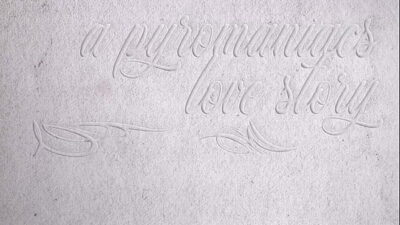 a pyromaniacs
love story